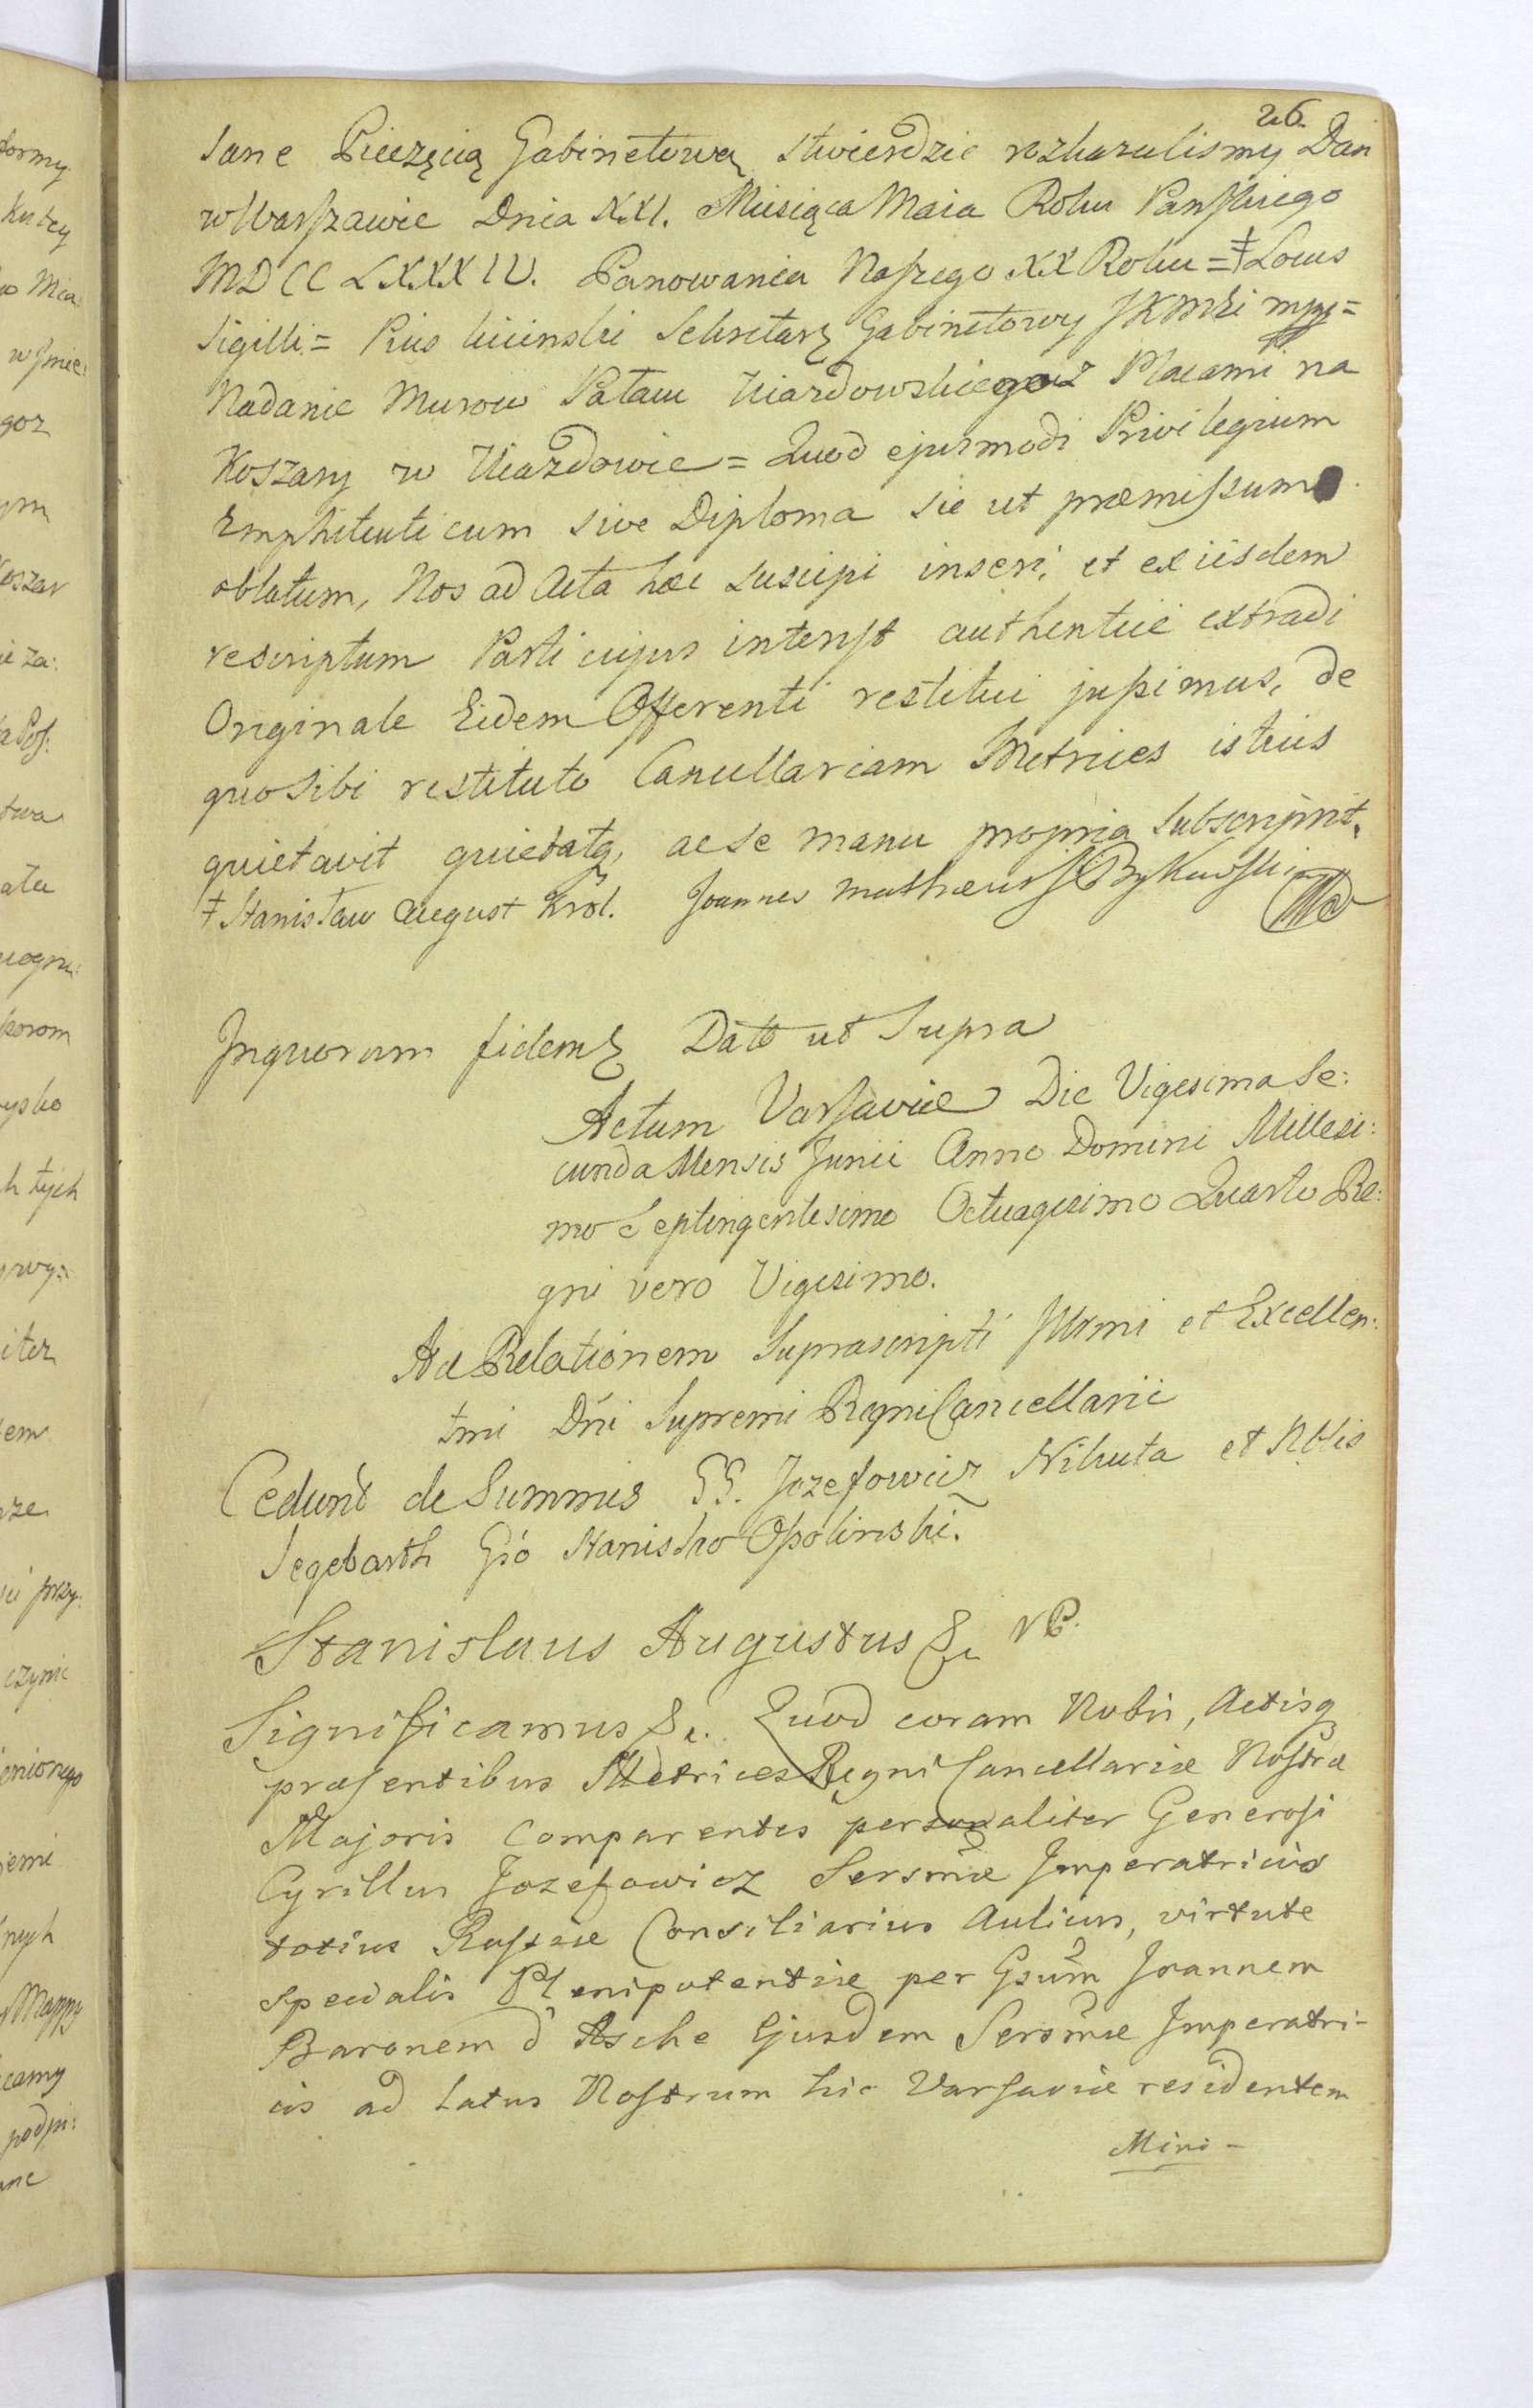 26.
sane Pieczęcią Gabinetową stwierdzic rozkazalismy Dan
w Warszawie Dnia XXI. Miesiąca Maia Roku Panskiego
MDCCLXXXIV. Panowania Naszego XX Roku = ‡ Locus
Sigilli = Pius Kicinski Sekretarz Gabinetowy JKMści mpp =
Nadanie Murow Pałacu Uiazdowskiego z Placami na
Koszary w Uiazdowie = Quod ejusmodi Privilegium
Emphiteuticum sive Diploma sic ut præmissum
oblatum, Nos ad Acta hæc suscipi inseri, et ex iisdem
rescriptum Parti cujus interest authentice extradi
Originale Eidem Offerenti restitui jussimus, de
quo sibi restituto Cancellariam Metrices istius
quietavit quietatq, ac se manu propria subscripsit.
‡ Stanisław August Król. Joannes Mathæus Bykowski
In quorum fidem Datt ut Supra
Actum Varsaviæ Die Vigesima Se:
cunda Mensis Junii Anno Domini Millesi:
mo Septingentesimo Octuagesimo Quarto Re:
gni vero Vigesimo.
Ad Relationem Suprascripti Illrmi et Excellen:
tmi Dni Supremi Regni Cancellarii
Cedunt de Summis GG. Jozefowicz Nikuta et Nblis
Segebarth Gso Stanislao Opolinski.
Stanislaus Augustus &c
Significamus &c. Quod coram Nobis, Actisq
præsentibus Metrices Regni Cancellariæ Nostræ
Majoris Comparentes personaliter Generosi
Cyrillus Jozefowicz Sersmæ Imperatricis
totius Russiæ Consiliarius Aulicus, virtute
specialis Plenipotentiæ per Gsum Joannem
Baronem d'Asche Ejusdem Sersmæ Imperatri-
cis ad Latus Nostrum hic Varsaviæ residentem
Mini-